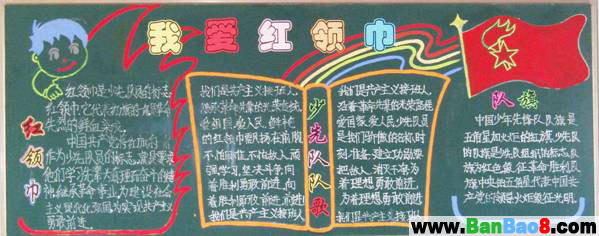 www.BanBao8.com
我爱红领巾
红领巾
红领巾是少先队员的标志,
红领巾,它代表红旗的一角,是革命
先烈的鲜血染成,
中国共产党
作为少先队员的标志,
主义现代化祖国,为实现共产主义
勇敢前进。
少先队队歌
我们是共产主义接班人,
继承革命先辈的光荣传统,
爱祖国,爱人民,鲜艳
的红领巾飘扬在前胸,
不怕困难,不怕敌人,顽
强学习,坚决斗争,向
着胜利勇敢前进,向
着胜利勇敢前进,前进!
我们是共产主义接班人
我们是共产主义接班人,
沿着革命先辈的光荣路程,
爱祖国,爱人民,少先队员
是我们骄傲的名称,时
刻准备,建立功勋,要
把敌人,消灭干净,为
着理想勇敢前进,
为着理想勇敢前进,前进!
我们是共产主义接班人。
队旗
中国少年先锋队队旗是
五角星加火炬的红旗,少先队
的队旗是少先队组织的标志,队
旗为红色象征革命胜利,队
旗中央的五角星代表中国共
产党的领导,火炬象征光明。
www.BanBao8.com